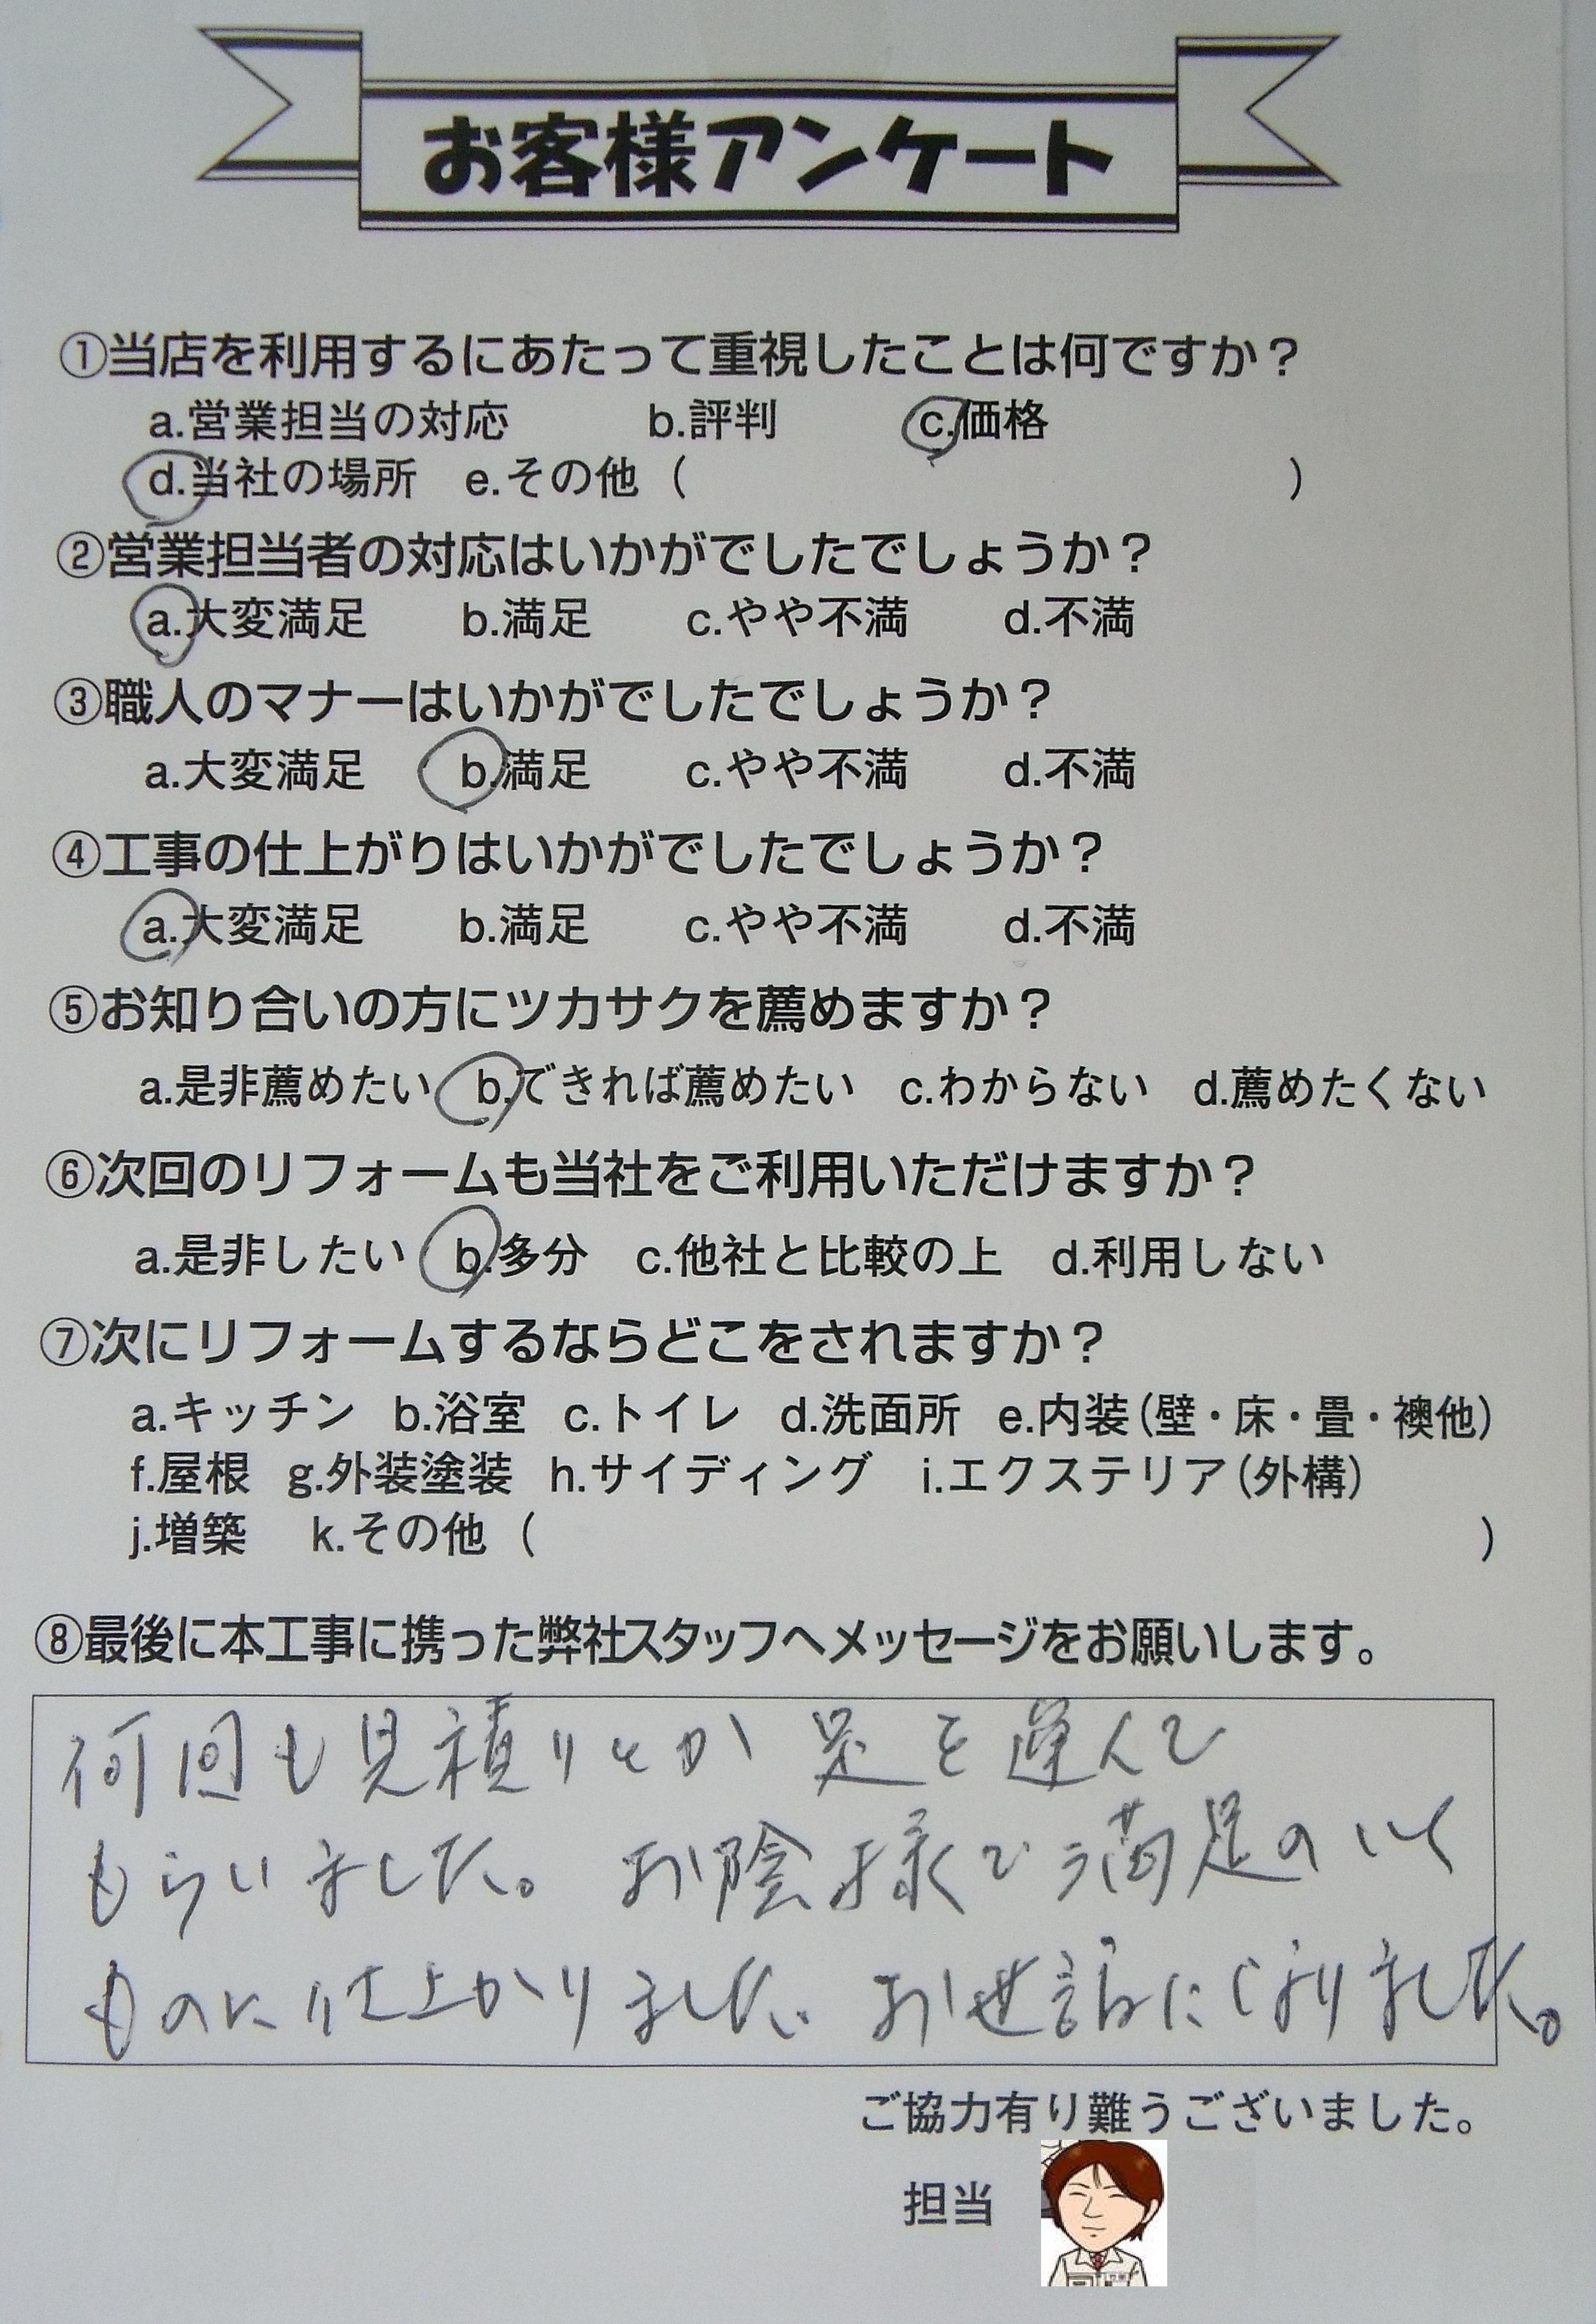 お客様アンケート
①当店を利用するにあたって重視したことは何ですか？
a.営業担当の対応 b.評判 c.価格
d.当社の場所 e.その他（ ）
②営業担当者の対応はいかがでしたでしょうか？
a.大変満足 b.満足 c.やや不満 d.不満
③職人のマナーはいかがでしたでしょうか？
a.大変満足 b.満足 c.やや不満 d.不満
④工事の仕上がりはいかがでしたでしょうか？
a.大変満足 b.満足 c.やや不満 d.不満
⑤お知り合いの方にツカサクを薦めますか？
a.是非薦めたい b.できれば薦めたい c.わからない d.薦めたくない
⑥次回のリフォームも当社をご利用いただけますか？
a.是非したい b.多分 c.他社と比較の上 d.利用しない
⑦次にリフォームするならどこをされますか？
a.キッチン b.浴室 c.トイレ d.洗面所 e.内装（壁・床・畳・襖他）
f.屋根 g.外装塗装 h.サイディング i.エクステリア（外構）
j.増築 k.その他（ ）
⑧最後に本工事に携った弊社スタッフへメッセージをお願いします。
何回も見積りとか 足を運んで
もらいました。お陰様で満足のいく
ものに仕上がりました。お世話になりました。
ご協力有り難うございました。
担当